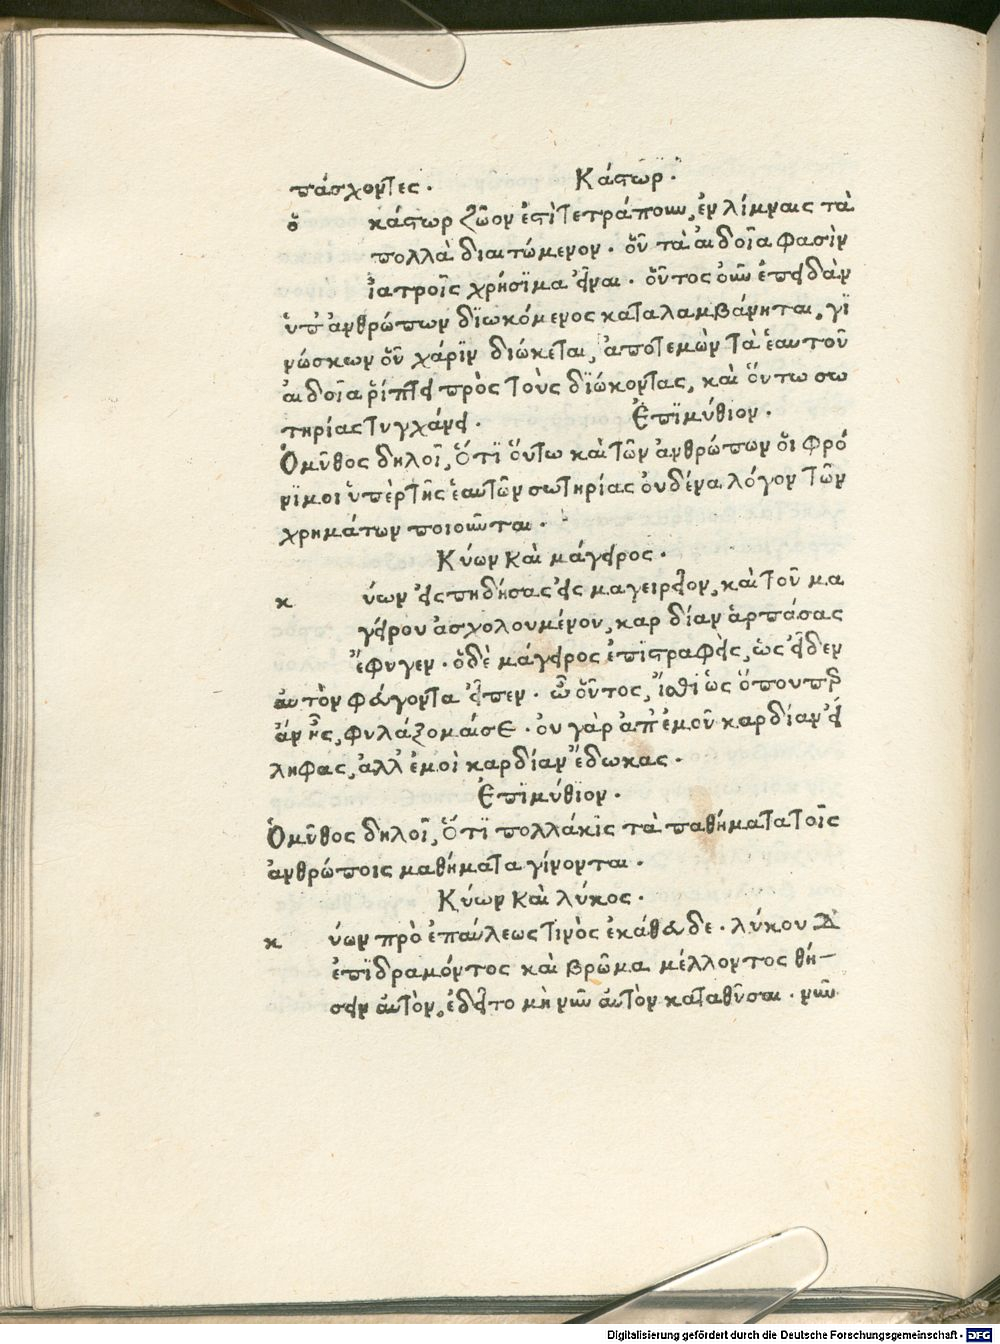 πάσχοντες. Κάστωρ.
ὁ κάστωρ ζῶον ἐστὶ τετράπουν, ἐν λίμναις τὰ
πολλὰ διαιτώμενον. οὗ τὰ αἰδοῖα φασὶν
ἰατροῖς χρήσιμα εἶναι. οὗτος οὖν ἐπειδὰν
ὑπ' ἀνθρώπων διωκόμενος καταλαμβάνηται, γι
νώσκων οὗ χάριν διώκεται, ἀποτεμὼν τὰ ἑαυτοῦ
αἰδοῖα ῥίπτει πρὸς τοὺς διώκοντας, καὶ οὕτω σω
τηρίας τυγχάνει. Ἐπιμύθιον.
Ὁ μῦθος δηλοῖ, ὅτι οὕτω καὶ τῶν ἀνθρώπων οἱ φρό
νιμοι ὑπὲρ τῆς ἑαυτῶν σωτηρίας οὐδένα λόγον τῶν
χρημάτων ποιοῦνται.
Κύων καὶ μάγειρος.
κ ύων εἰσπηδήσας εἰς μαγειρεῖον, καὶ τοῦ μα
γείρου ἀσχολουμένου, καρδίαν ἁρπάσας
ἔφυγεν. ὁ δὲ μάγειρος ἐπιστραφεὶς, ὡς εἶδεν
αὐτὸν φεύγοντα εἶπεν. ὦ οὗτος, ἴσθι ὡς ὅπου περ
ἂν ᾖς, φυλάξομαί σε. οὐ γὰρ ἀπ' ἐμοῦ καρδίαν εἴ
ληφας, ἀλλ' ἐμοὶ καρδίαν ἔδωκας.
Ἐπιμύθιον.
Ὁ μῦθος δηλοῖ, ὅτι πολλάκις τὰ παθήματα τοῖς
ἀνθρώποις μαθήματα γίνονται.
Κύων καὶ λύκος.
κ ύων πρὸ ἐπαύλεώς τινος ἐκάθευδε. λύκου δ
ἐπιδραμόντος καὶ βρῶμα μέλλοντος θή-
σειν αὐτὸν, ἐδεῖτο μὴ νῦν αὐτὸν καταθῦσαι. νῦν
Digitalisierung gefördert durch die Deutsche Forschungsgemeinschaft - DFG